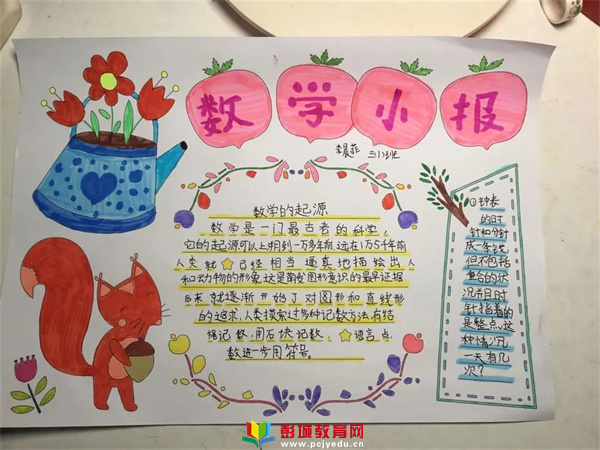 数学小报
李晨菲 三(2)班
数学的起源
数学是一门最古老的科学,
它的起源可以上朔到一万多年前.远在1万5千年前
人类就☆已经相当逼真地描绘出人
和动物的形象.这是萌发图形意识的最早证据
后来就逐渐开始了对图形和直线形
的追求,人类摸索过多种记数方法,有结
绳记数.用石块记数,☆语言点
数进一步用符号。
①钟表
的时
针和分针
成一条线
但不包括
重合的状
况并且时
针指着的
是整点.这
种情况
一天有几
次?
彭城教育网
www.pcjyedu.cn